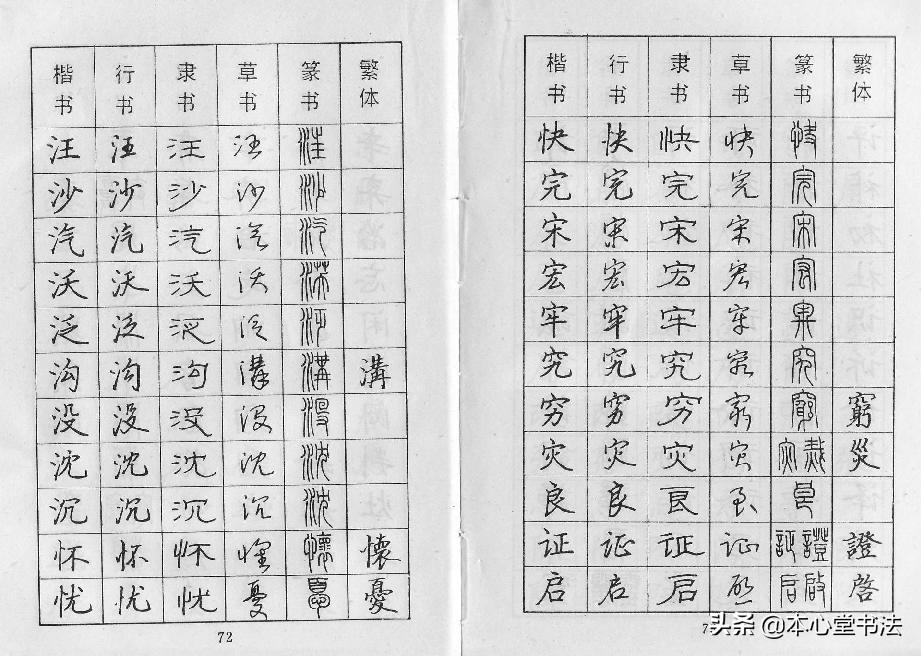 楷书 行书 隶书 草书 篆书 繁体
汪 汪 汪 汪 汪
沙 沙 沙 沙 沙
汽 汽 汽 汽 汽
沃 沃 沃 沃 沃
泛 泛 泛 泛 泛
沟 沟 沟 溝 溝 溝
没 没 没 没 没
沈 沈 沈 沈 沈
沉 沉 沉 沉 沈
怀 怀 怀 懷 懷 懷
忧 忧 忧 憂 憂 憂
72
楷书 行书 隶书 草书 篆书 繁体
快 快 快 快 快
完 完 完 完 完
宋 宋 宋 宋 宋
宏 宏 宏 宏 宏
牢 牢 牢 牢 牢
究 究 究 究 究
穷 穷 穷 窮 窮 窮
灾 灾 灾 灾 灾 烖 災
良 良 良 良 良
证 证 证 证 証 證 證
启 启 启 啟 启 啟 啓
头条 @本心堂书法